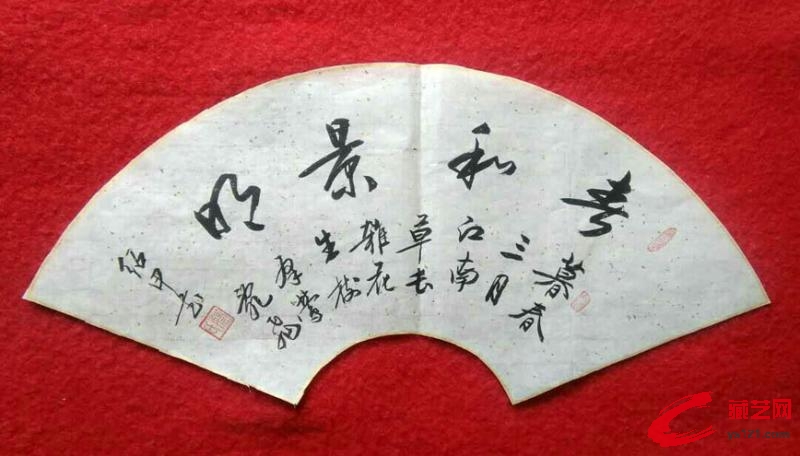 春和景明
暮春
三月
江南
草长
雜花
生树
羣莺
乱飛
藏艺网